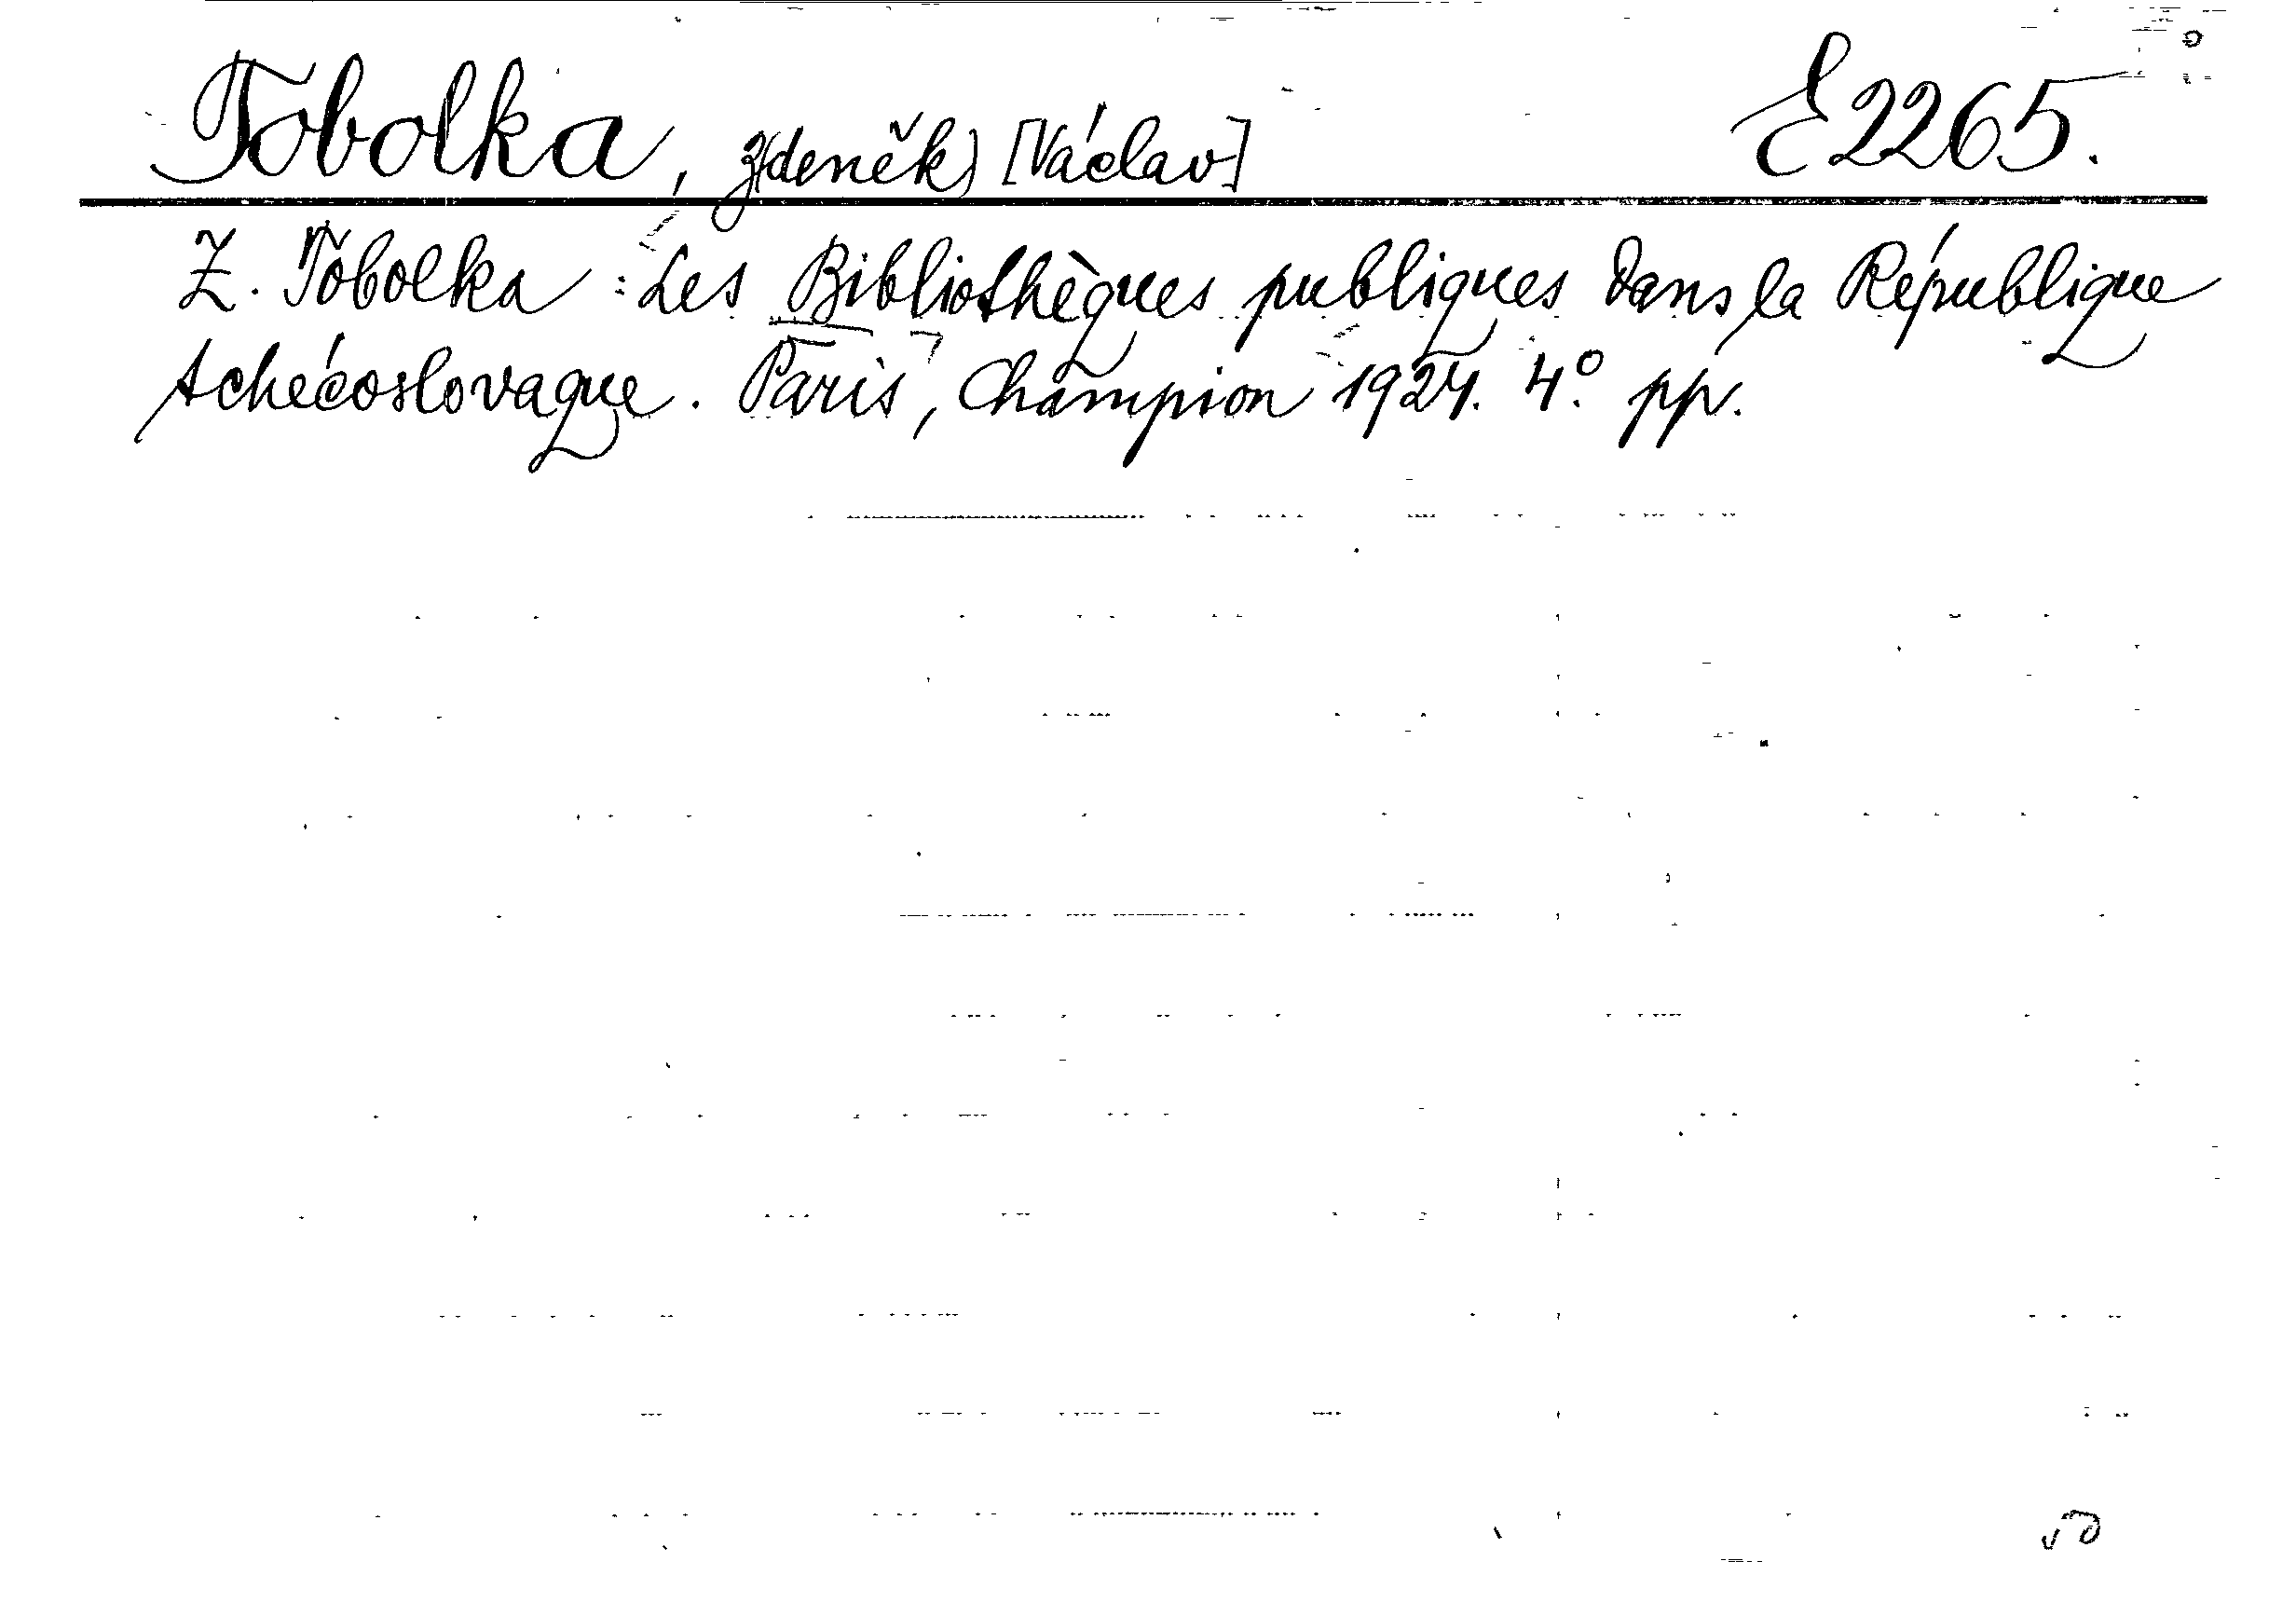 Tobolka, Z(deněk) [Václav] E 2265.
Z. Tobolka: Les Bibliothèques publiques dans la République
tchécoslovaque. Paris, Champion 1924. 4° pp.